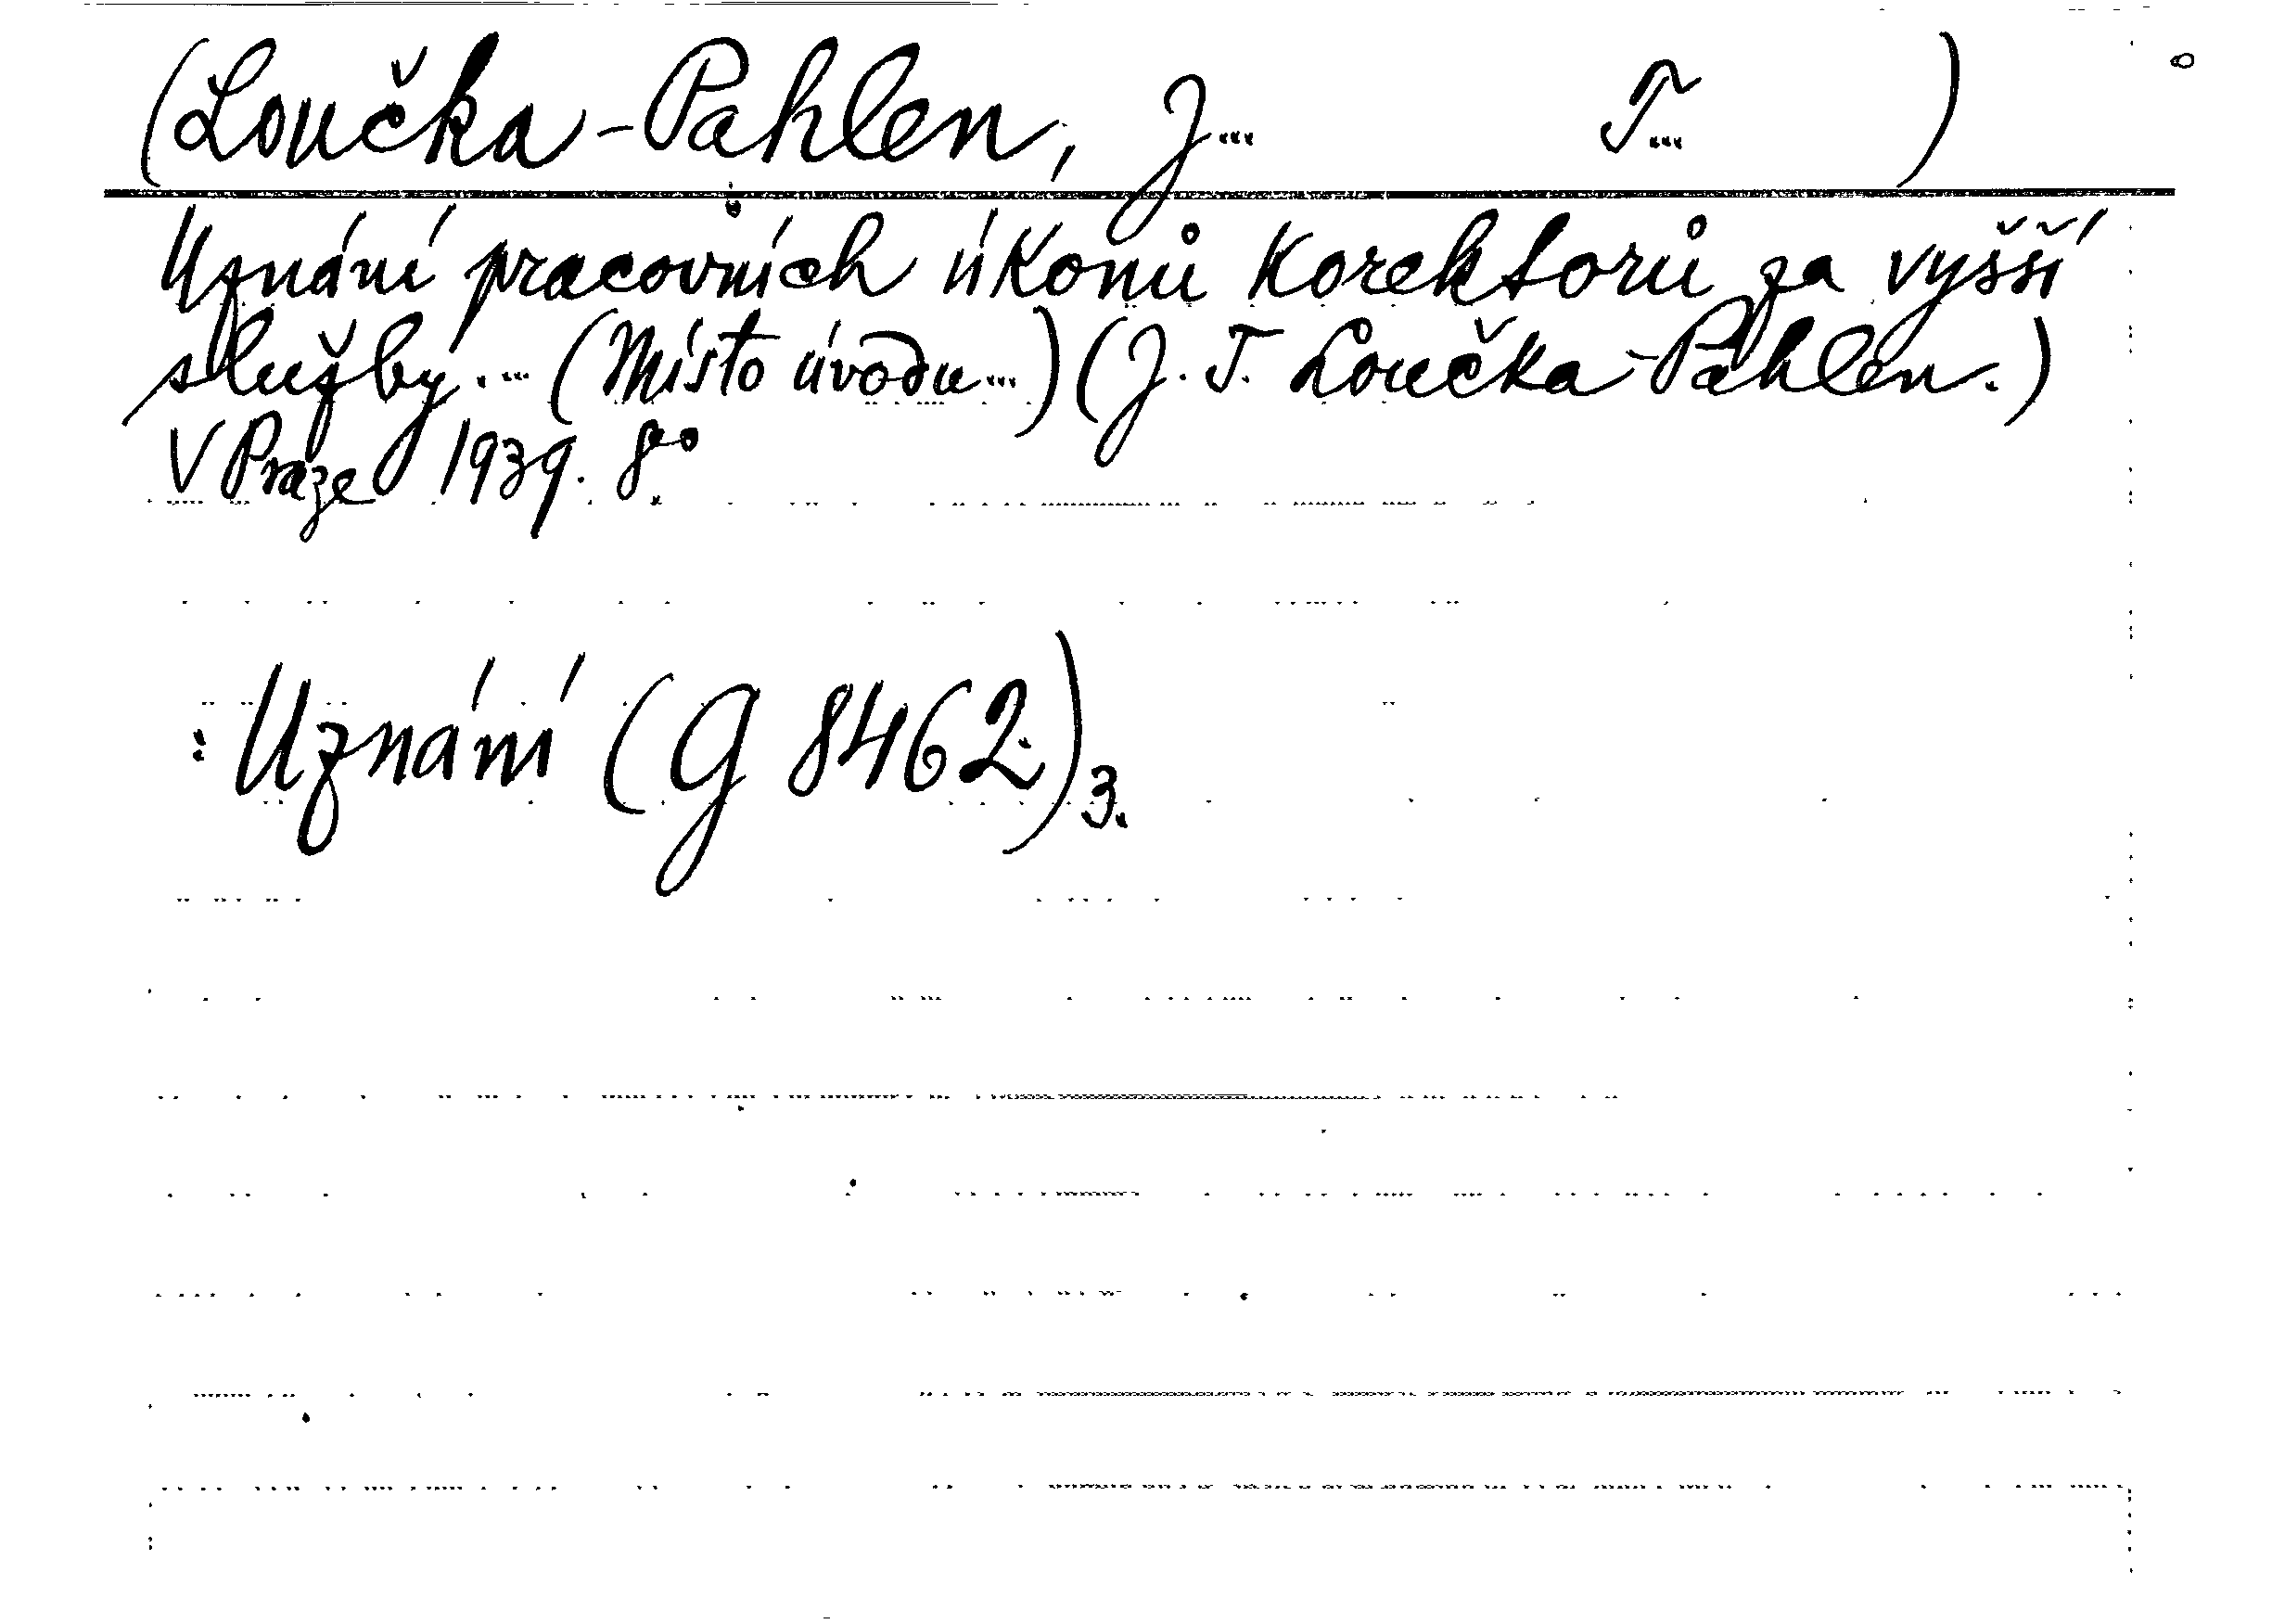 (Loučka-Pahlen, J... T...)
Uznání pracovních úkonů korektorů za vyšší
služby.... (Místo úvodu...) (J. T. Loučka-Pahlen.)
V Praze 1939. 8°
: Uznání (G 8462)3.